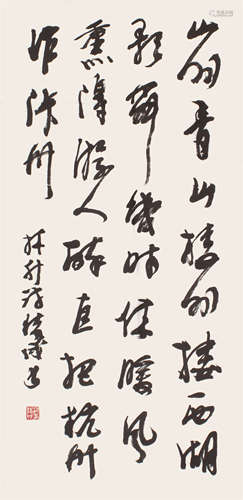 山外青山楼外楼西湖
歌舞几时休暖风
熏得游人醉直把杭州
作汴州
林升诗